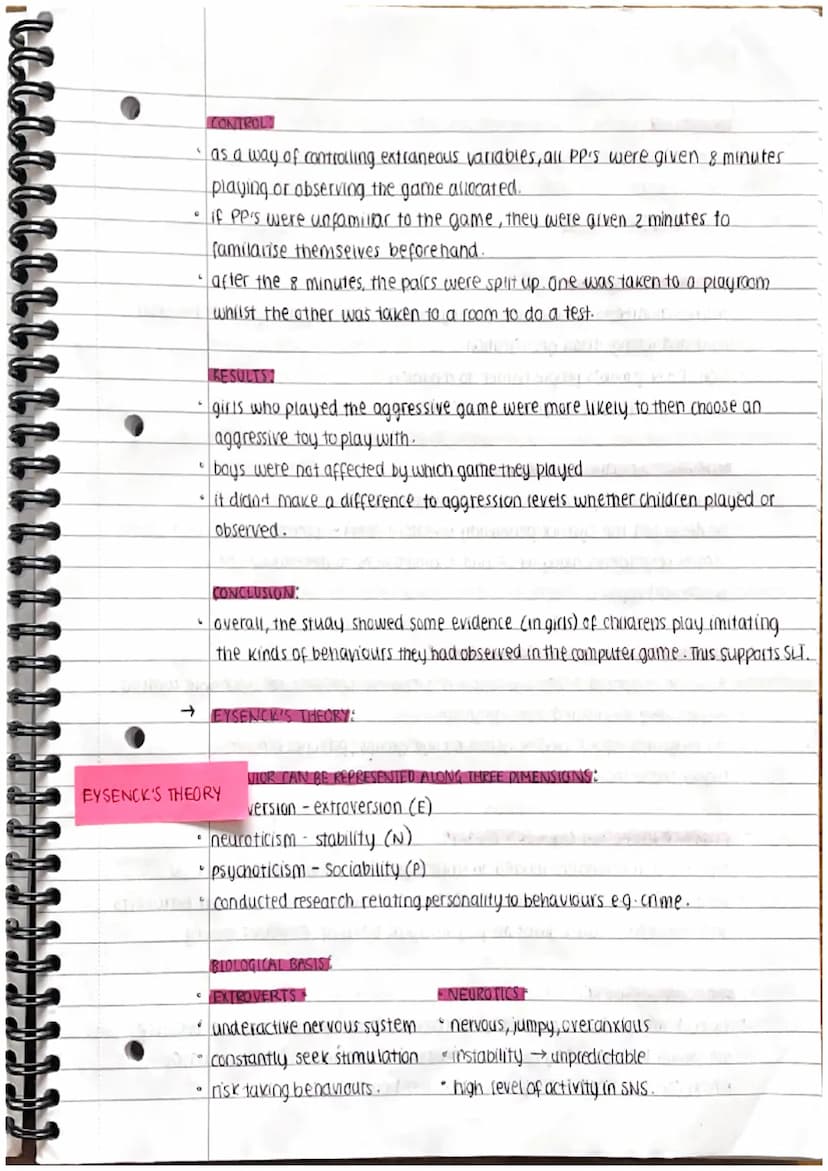 CONTROL:
• as a way of controlling extraneous variables, all PP's were given 8 minutes
playing or observing the game allocated.
• if PP's were unfamiliar to the game, they were given 2 minutes to
familarise themselves beforehand.
• after the 8 minutes, the pairs were split up. One was taken to a playroom
whilst the other was taken to a room to do a test.
RESULTS:
• girls who played the aggressive game were more likely to then choose an
aggressive toy to play with.
• boys were not affected by which game they played
• it didn't make a difference to aggression levels whether children played or
observed.
CONCLUSION:
• overall, the study showed some evidence (in girls) of childrens play imitating
the kinds of behaviours they had observed in the computer game. Thus supports SLT.
→ EYSENCK'S THEORY:
EYSENCK'S THEORY
VIOR CAN BE REPRESENTED ALONG THREE DIMENSIONS:
version - extroversion (E)
• neuroticism - stability (N)
• psychoticism - sociability (P)
• conducted research relating personality to behaviours eg. crime.
BIOLOGICAL BASIS:
• EXTROVERTS • • NEUROTICS •
• underactive nervous system • nervous, jumpy, overanxious
• constantly seek stimulation • instability → unpredictable
• risk taking behaviours. • high level of activity in SNS.